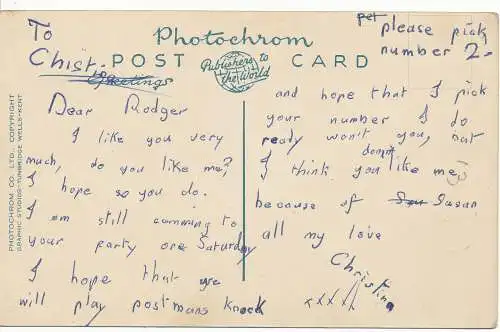 To
Christ
Greetings
Photochrom
POST CARD
Publishers to the World
PHOTOCHROM CO. LTD., COPYRIGHT
GRAPHIC STUDIOS-TUNBRIDGE WELLS-KENT
pet please pick
number 2
Dear Rodger
I like you very
much, do you like me?
I hope so you do.
I am still comming to
your party one Saturday
I hope that we
will play postmans knock
and hope that I pick
your number I do
realy won't you, not
I think you dont like me
because of Susan
all my love
Christina
xxxx